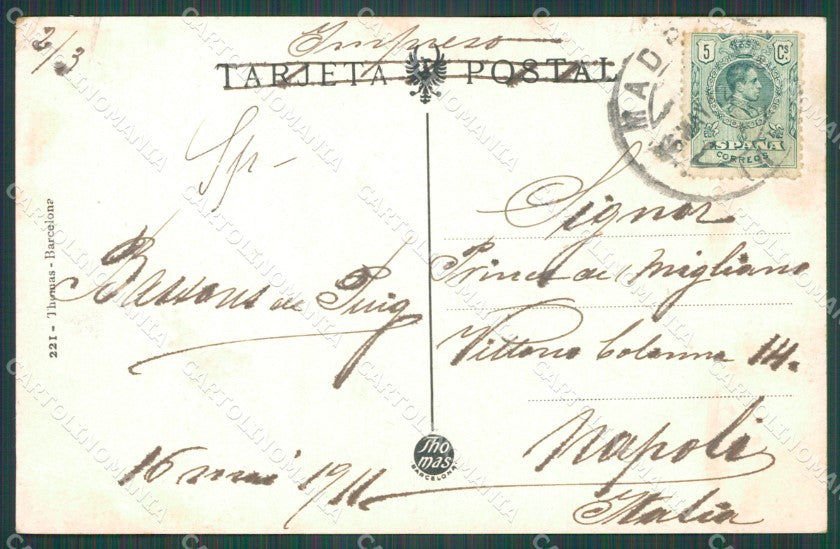 2/3
Impreso
TARJETA POSTAL
5 Cs
ESPAÑA
CORREOS
MAD
Sp-
Bassons de Puig
16 mai 1911
221 - Thomas - Barcelona
Thomas
BARCELONA
Signor
Prince de Migliano
Vittorio Colonna 14.
Napoli
Italia
CARTOLINOMANIA